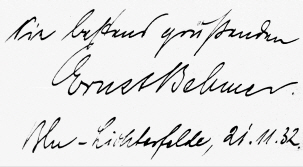 Sie bestens grüßenden
Ernst Behmer.
Bln-Lichterfelde, 21.11.32.